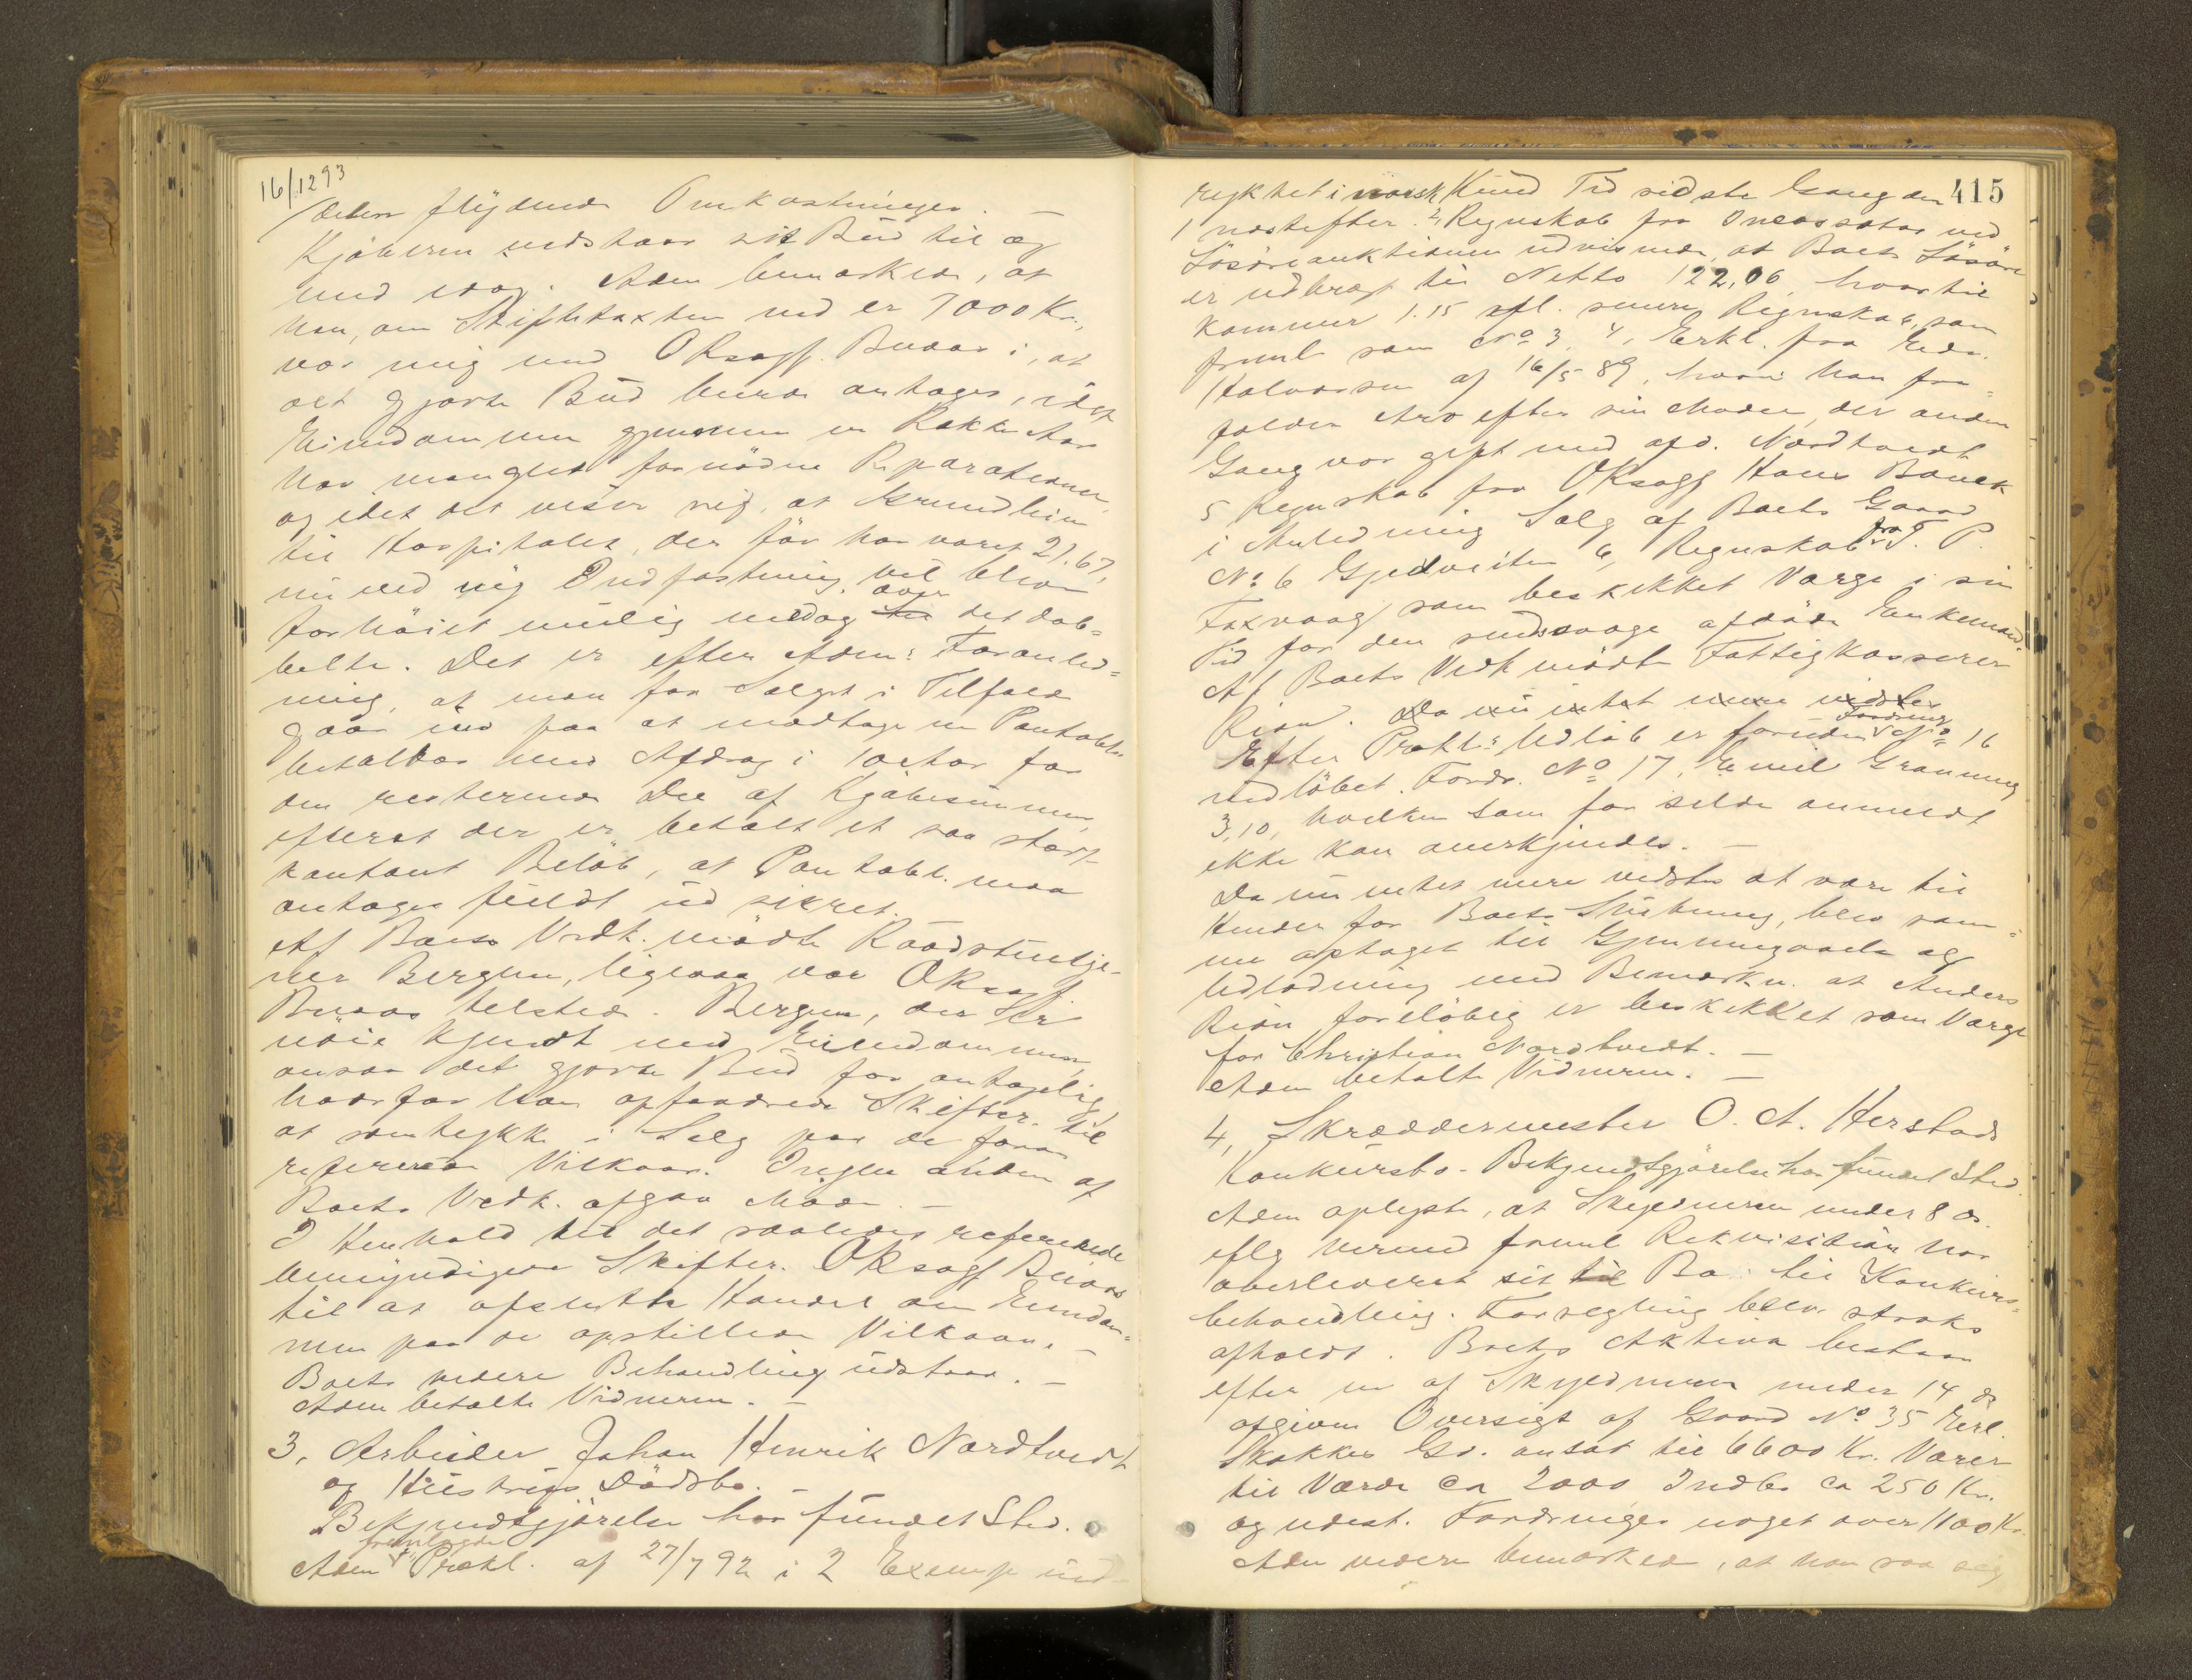 16/1293
deraf flydende Omkostninger. —
Kjøberen vedstaar sit Bud til og
med idag. Adm bemærkede, at
han, om Skiftetaxten ved er 7000 Kr.,
var enig med OKsagf. Buaas i, at
det gjorte Bud burde antages, idet
Eiendommen gjennem en Række Aar
har manglet fornødne Reparationer,
og idet det viser sig, at Grundleien
til Hospitalet, der før har været 21.67,
nu ved ny Bndfæstning vil blive
forhøiet muligt endog over det dob=
belte. Det er efter Adms Foranled=
ning, at man for Salget i Tilfælde
gaar ind paa at modtage en Pantobl.
betalbar med Afdrag i 10 Aar for
den resterende Del af Kjøbesummen,
efterat der er betalt et saa stort
kontant Beløb, at Pantobl. maa
antages fuldt ud sikret.
Af Boets Vedk. mødte Raadstutje-
ner Bergum, ligesaa var OKsagf
Buaas tilstede. Bergum, der er
nøie kjendt med Eiendommen,
ansaa det gjorte Bud for antagelig,
hvorfor han opfordrede Skifter. til
at samtykke i Salg paa de foran
refererede Vilkaar. Ingen anden af
Boets Vedk. afgav Møde. —
I Henhold til det saaledes refererede
bemyndigede Skifter. OKsagf Buaas
til at afslutte Handel om Eiendom=
men paa de opstillede Vilkaar. —
Boets videre Behandling udstaar. —
Adm betalte Vidnerne. —
3, Arbeider Johan Henrik Nordtvedt
og Hustrus Dødsbo. —
Bekjendtgjørelse har fundet Sted.
fremlagde
Adm 1, Prokl. af 27/7 92 i 2 Exempl ind-
415
rykket i norsk Kund Tid sidste Gang den
1 næstefter. 2, Regnskab fra Incassator ved
Løsøreauktionen udvisende, at Boets Løsøre
er udbragt til Netto 122,06, hvortil
kommer 1.15 efl. senere Regnskab, som
freml som No 3. 4, Erkl. fra Edv.
Halvorsen af 16/5 89, hvori han fra=
falder Arv efter sin Moder, der anden
Gang var gift med afd. Nordtvedt
5 Regnskab fra OKsagf Hans Bauck
i Anledning Salg af Boets Gaard
No 6 Gjedveiten 6, Regnskab fra T. P.
Foxvaag som beskikket Værge i sin
Tid for den sindssvage afdøde Enkemand.
Af Boets Vedk mødte Fattigkasserer
Rian. Da nu intet mere vidstes
Efter Prokl: Udløb er foruden Fordring No 16
indløbet. Fordr. No 17, Emil Granning
3,10, hvilken som for silde anmeldt
ikke kan anerkjendes. —
Da nu intet mere vidstes at være til
Hinder for Boets Slutning, blev sam=
me optaget til Gjennemgaaelse og
Udlodning med Bemærkn. at Anders
Rian foreløbig er beskikket som Værge
for Christian Nordtvedt. —
Adm betalte Vidnerne. —
4, Skræddermester O. A. Herstads
Konkursbo. Bekjendtgjørelse har fundet Sted.
Adm oplyste, at Skyldneren under 8 ds.
eflg herved freml Rekvisition har
overleveret sit Bo til Konkurs=
behandling. Forsegling blev straks
afholdt. Boets Aktiva bestaar
efter en af Skyldneren under 14 ds
afgiven Oversigt af Gaard No 35 Erl.
Skakkes Gd. ansat til 6600 Kr. Varer
til Værdi ca 2000 Indbo ca 250 Kr.
og udest. Fordringer noget over 1100 Kr.
Adm videre bemærkede, at han saa sig